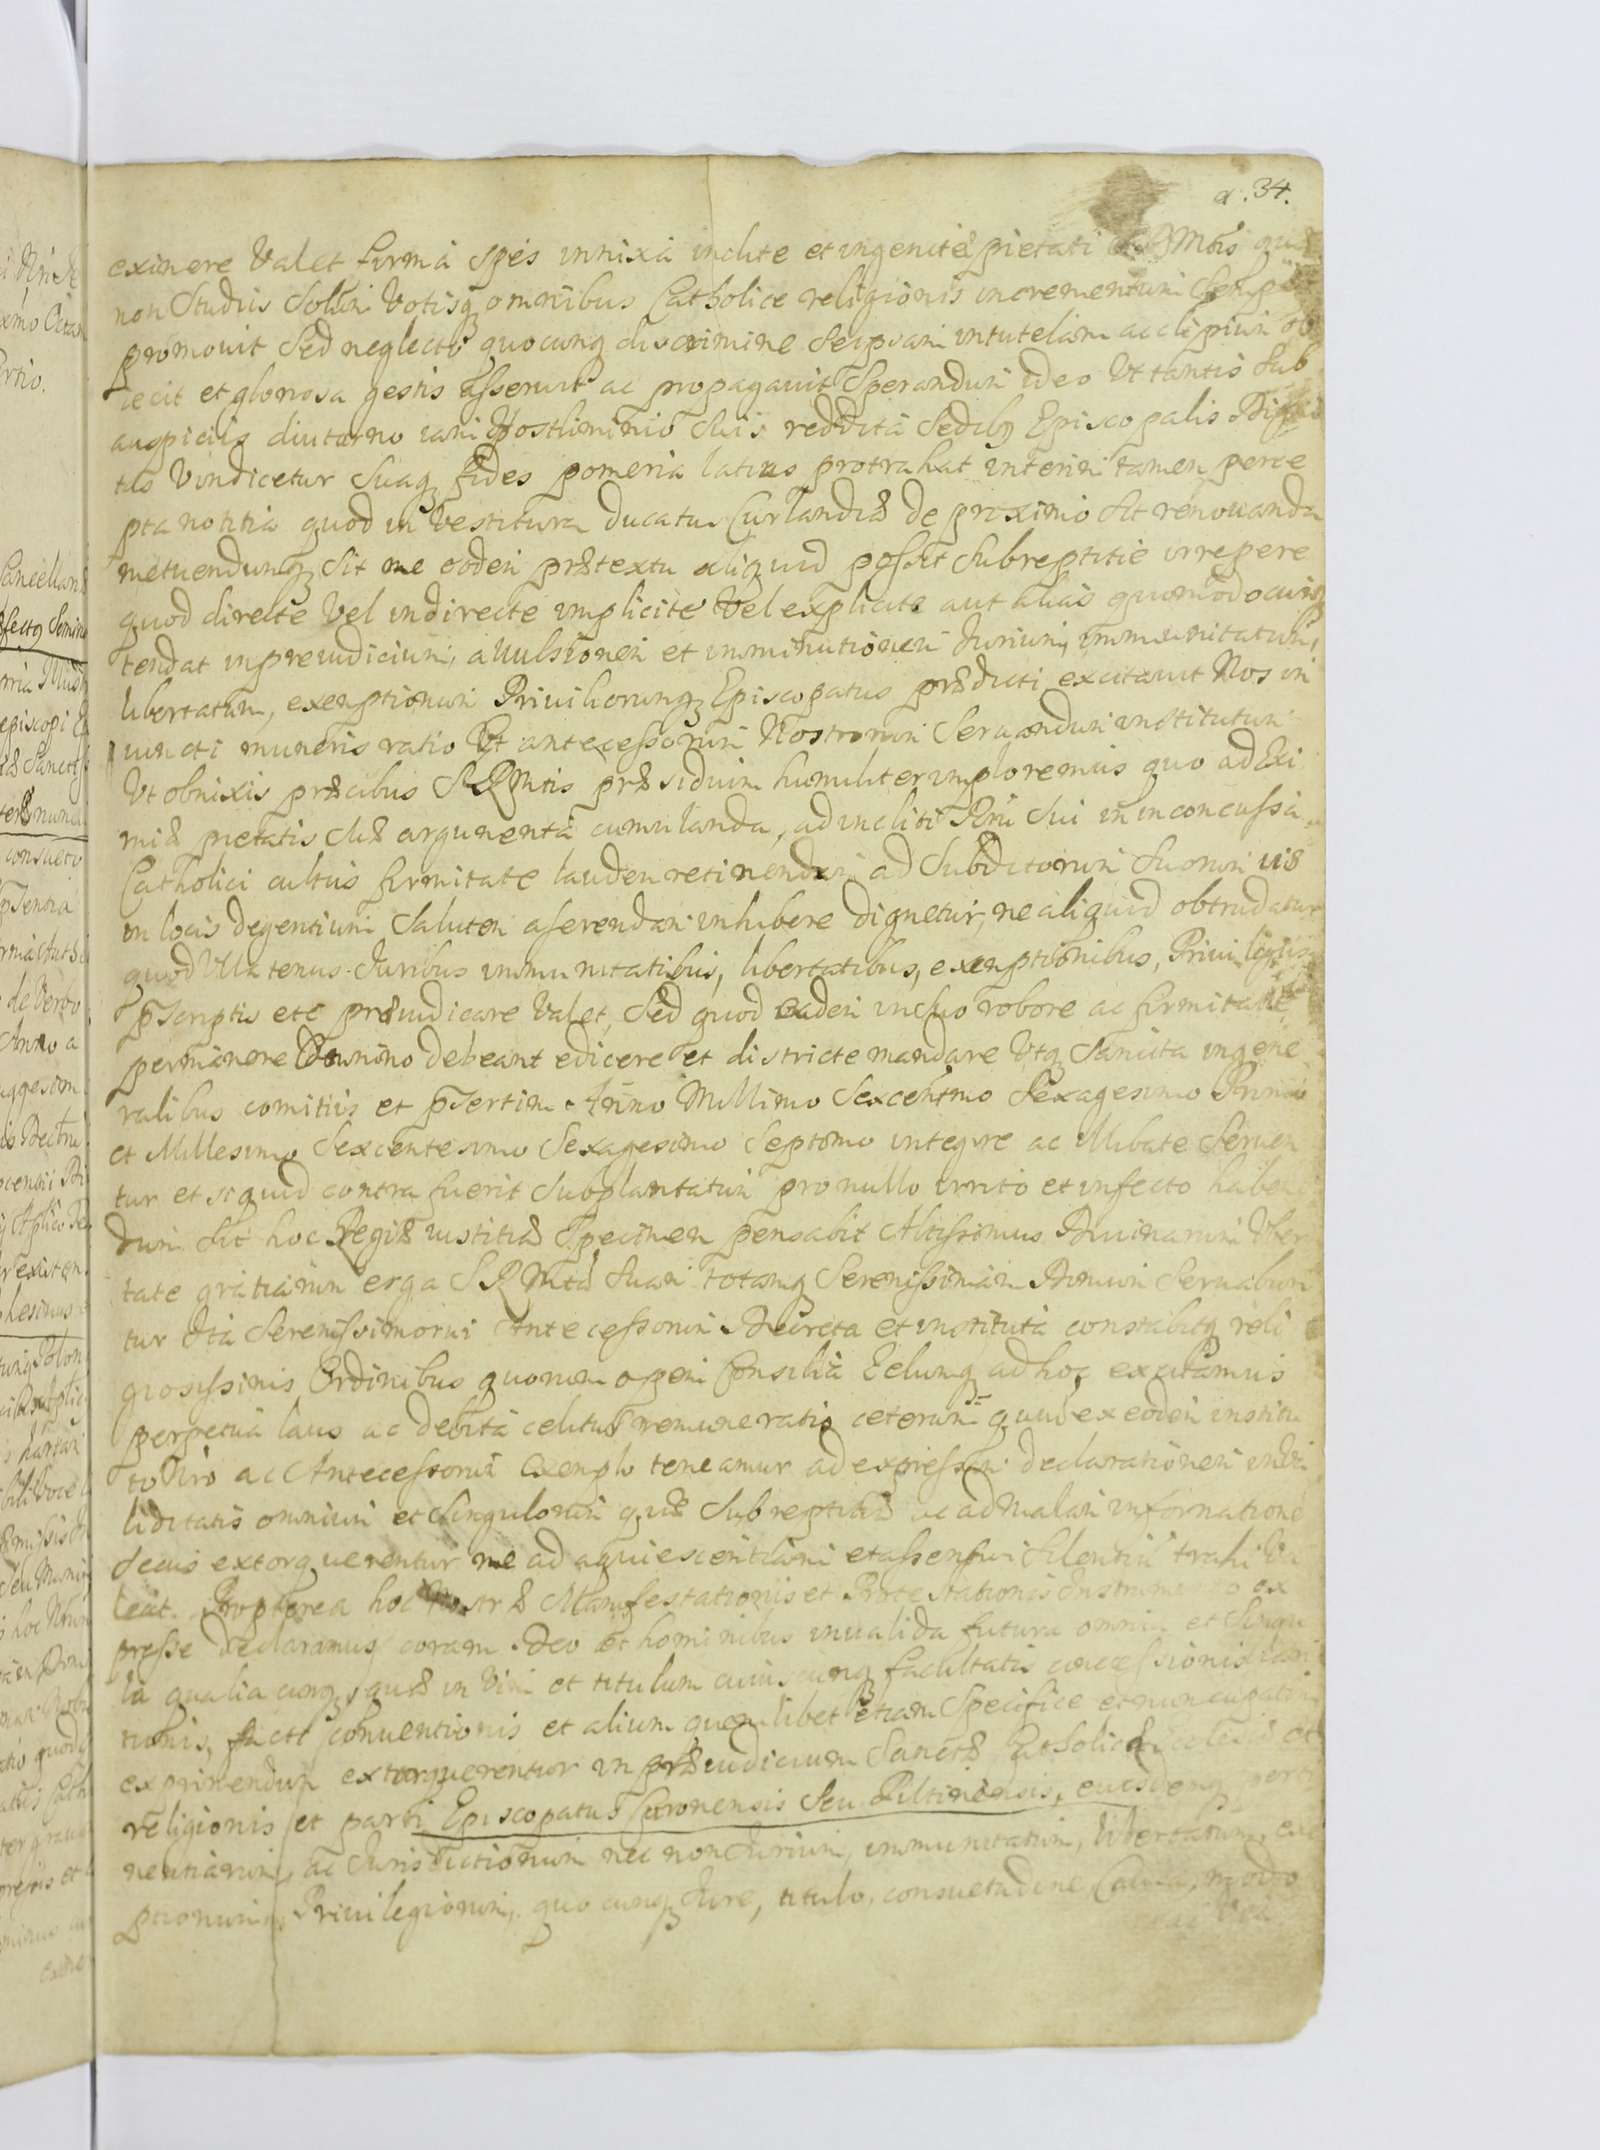 a. 34.
exinere Valet firma spes innixa inclite et ingenite pietati S R Mtis quæ
non Studiis Solum Votisq omnibus Catholice religionis incrementum Semper
promouit Sed neglecto quocunq discrimine Seipsam in tutelam ac clipium ob
iecit et gloriosa gestis asseruit ac propagauit Sperandum ideo Vt tantis Sub
auspiciis diuturno iam Postliminio Suis reddita Sedibq Episcopalis Digni
tas Vindicetur Suaq fides pomeria latius protrahat interim tamen perce
pta notitia quod in Vestitura Ducatus Curlandiæ de proximo sit renouanda
metuendumq Sit ne eodem prætextu aliquid posset Subreptitie irrepere
quod directe Vel indirecte implicite Vel explicite aut alias quomodocunq
tendat in preiudicium, auulsionem et imminutionem Jurium, immunitatum,
libertatum, exemptionum Priuiliorumq Episcopatus prædicti excitauit Nos in
iuncti muneris ratio Vt antecessorum Nostrorum Seruandum institutum
Vt obnixis præcibus S R Mtis præsidium humiliter imploremus quo ad Exi
miæ pietatis Suæ argumenta cumulanda, ad incliti Rni Sui in inconcussa
Catholici cultus firmitate laudem retinendam ad Subditorum Suorum iis
in locis degentium Salutem aferendam inhibere dignetur, ne aliquid obtrudatur
quod Vllatenus Juribus immunitatibus, libertatibus, exemptionibus, Priuilegiis
pscriptis etc præiudicare Valet, Sed quod eadem in suo robore ac firmitate
permanere Omnino debeant edicere et districte mandare Vtq Sancita in gene
ralibus comitiis et psertim Anno Millimo Sexcentmo Sexagesimo Primo
et Millesimo Sexcentesimo Sexagesimo Septimo integre ac illibate Seruen
tur et si quid contra fuerit Subplantatum pro nullo irrito et infecto haben
dum Sit hoc Regiæ iustitiæ Specimen pensabit Altissimus Diuinarum Vber
tate gratiarum erga S R Mtem Suam totamq Serenissimam Domum Seruabun
tur Ita Serenissimorum Antecessorum Decreta et instituta constabitq reli
giosissimis Ordinibus quorum opem Consilia Zelumq ad hoc excitamus
perpetua laus ac debita celitus remuneratio ceterum quia ex eodem institu
to Nro ac Antecessorum Exemplo teneamur ad expressam declarationem inva
liditatis omnium et Singulorum quæ Subreptitiæ ac ad Malam informatione
Secus extorquerentur ne ad aquiescentiam et assensum Silentiu trahi Va
leat. Propterea hoc Nostræ Manifestationis et Protestationis Instrumento ex
presse declaramus coram Deo et hominibus inualida futura omnia et Singu
la qualiacunq, quæ in Vim et titulum cuiuscunq facultatis concessionis
tionis, facti conuentionis et alium quemlibet etiam Specifice et nuncupatim
exprimendum extorquerentur in præiudicium Sanctæ Catholicæ Ecclesiæ et
religionis et parti Episcopatus Curonensis Seu Piltinensis, eiusdemq perti
nentiarum, ac Jurisdictionum nec non Jurium, immunitatum, libertatum, exe
ptionum, Priuilegiorum, quocunq Jure, titulo, consuetudine Causa, modo